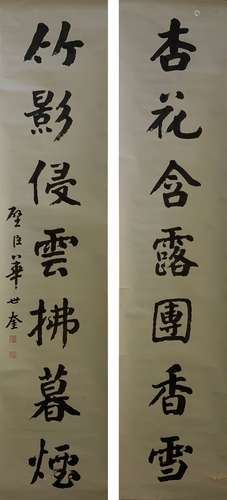 杏花含露團香雪
竹影侵雲拂暮煙
壁臣華世奎